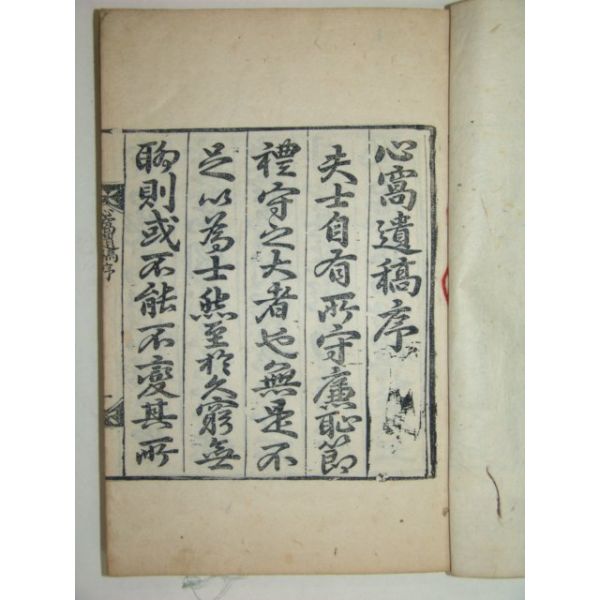 心窩遺稿序
夫士自有所守廉恥節
禮守之大者也無是不
足以為士然至於久窮無
聊則或不能不變其所
心窩遺稿序
一